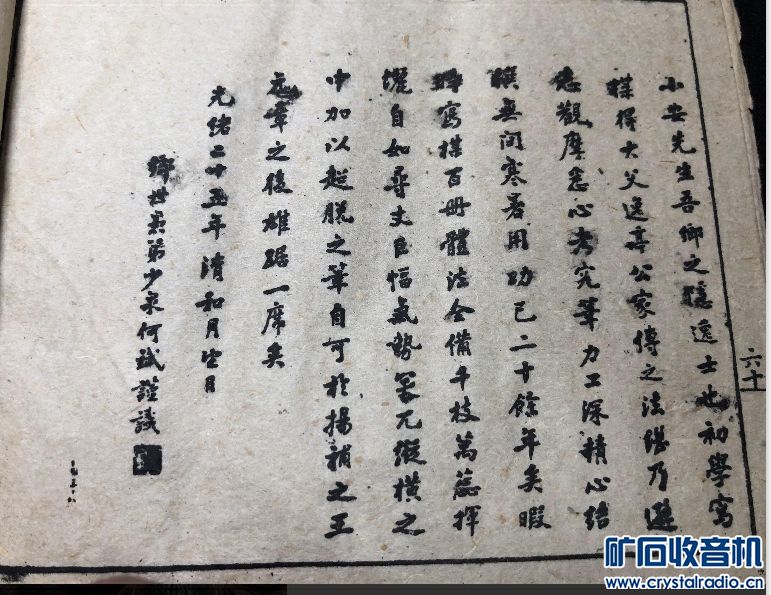 小安先生吾鄉之隱逸士也初學寫
樣得大父逸亭公家傳之法繼乃遊
觀摩悉心考究筆力工深精心結
無間寒暑用功已二十餘年矣暇
寫樣百冊體法全備千枝萬蕊揮
灑自如尋丈巨幅氣勢縱橫之
中加以超脫之筆自可於揚補之王
元章之後雄踞一席矣
光緒二十五年清和月
鄉世弟少泉何斌謹識
六十
矿石收音机
www.crystalradio.cn